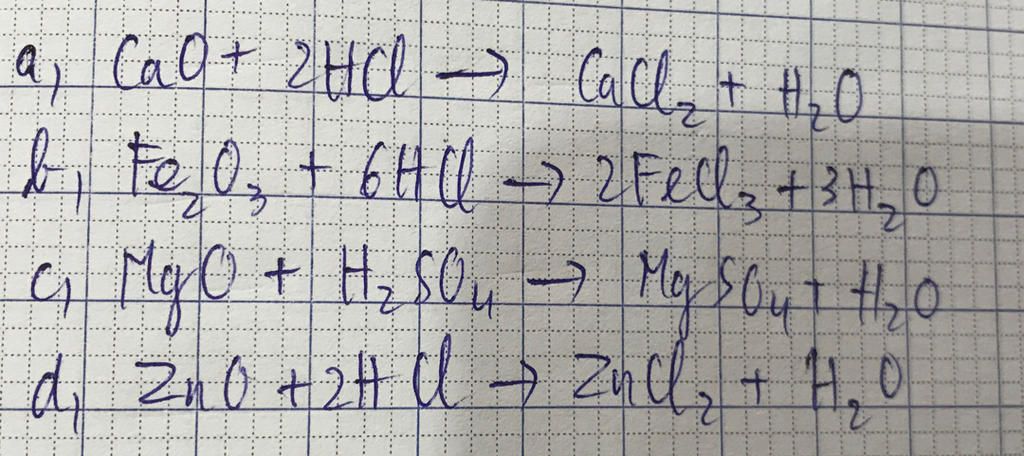 a, CaO + 2HCl → CaCl₂ + H₂O
b, Fe₂O₃ + 6HCl → 2FeCl₃ + 3H₂O
c, MgO + H₂SO₄ → MgSO₄ + H₂O
d, ZnO + 2HCl → ZnCl₂ + H₂O